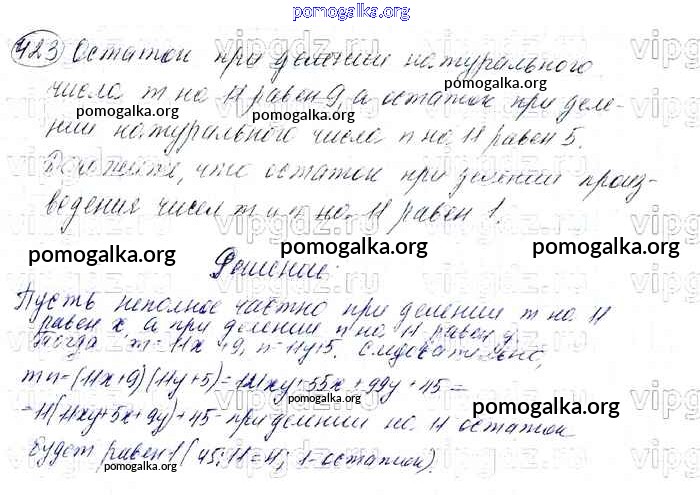 pomogalka.org
423 Остаток при делении натурального
числа m на 11 равен 9, а остаток при деле-
pomogalka.org pomogalka.org pomogalka.org
нии натурального числа n на 11 равен 5.
Докажите, что остаток при делении произ-
ведения чисел m и n на 11 равен 1.
pomogalka.org pomogalka.org pomogalka.org
Решение:
Пусть неполное частно при делении m на 11
равен x, а при делении n на 11 равен y.
Тогда m=11x+9, n=11y+5. Следовательно,
mn=(11x+9)(11y+5)=121xy+55x+99y+45=
pomogalka.org pomogalka.org
=11(11xy+5x+9y)+45- при делении на 11 остаток
будет равен 1 (45:11=4; 1-остаток).
pomogalka.org